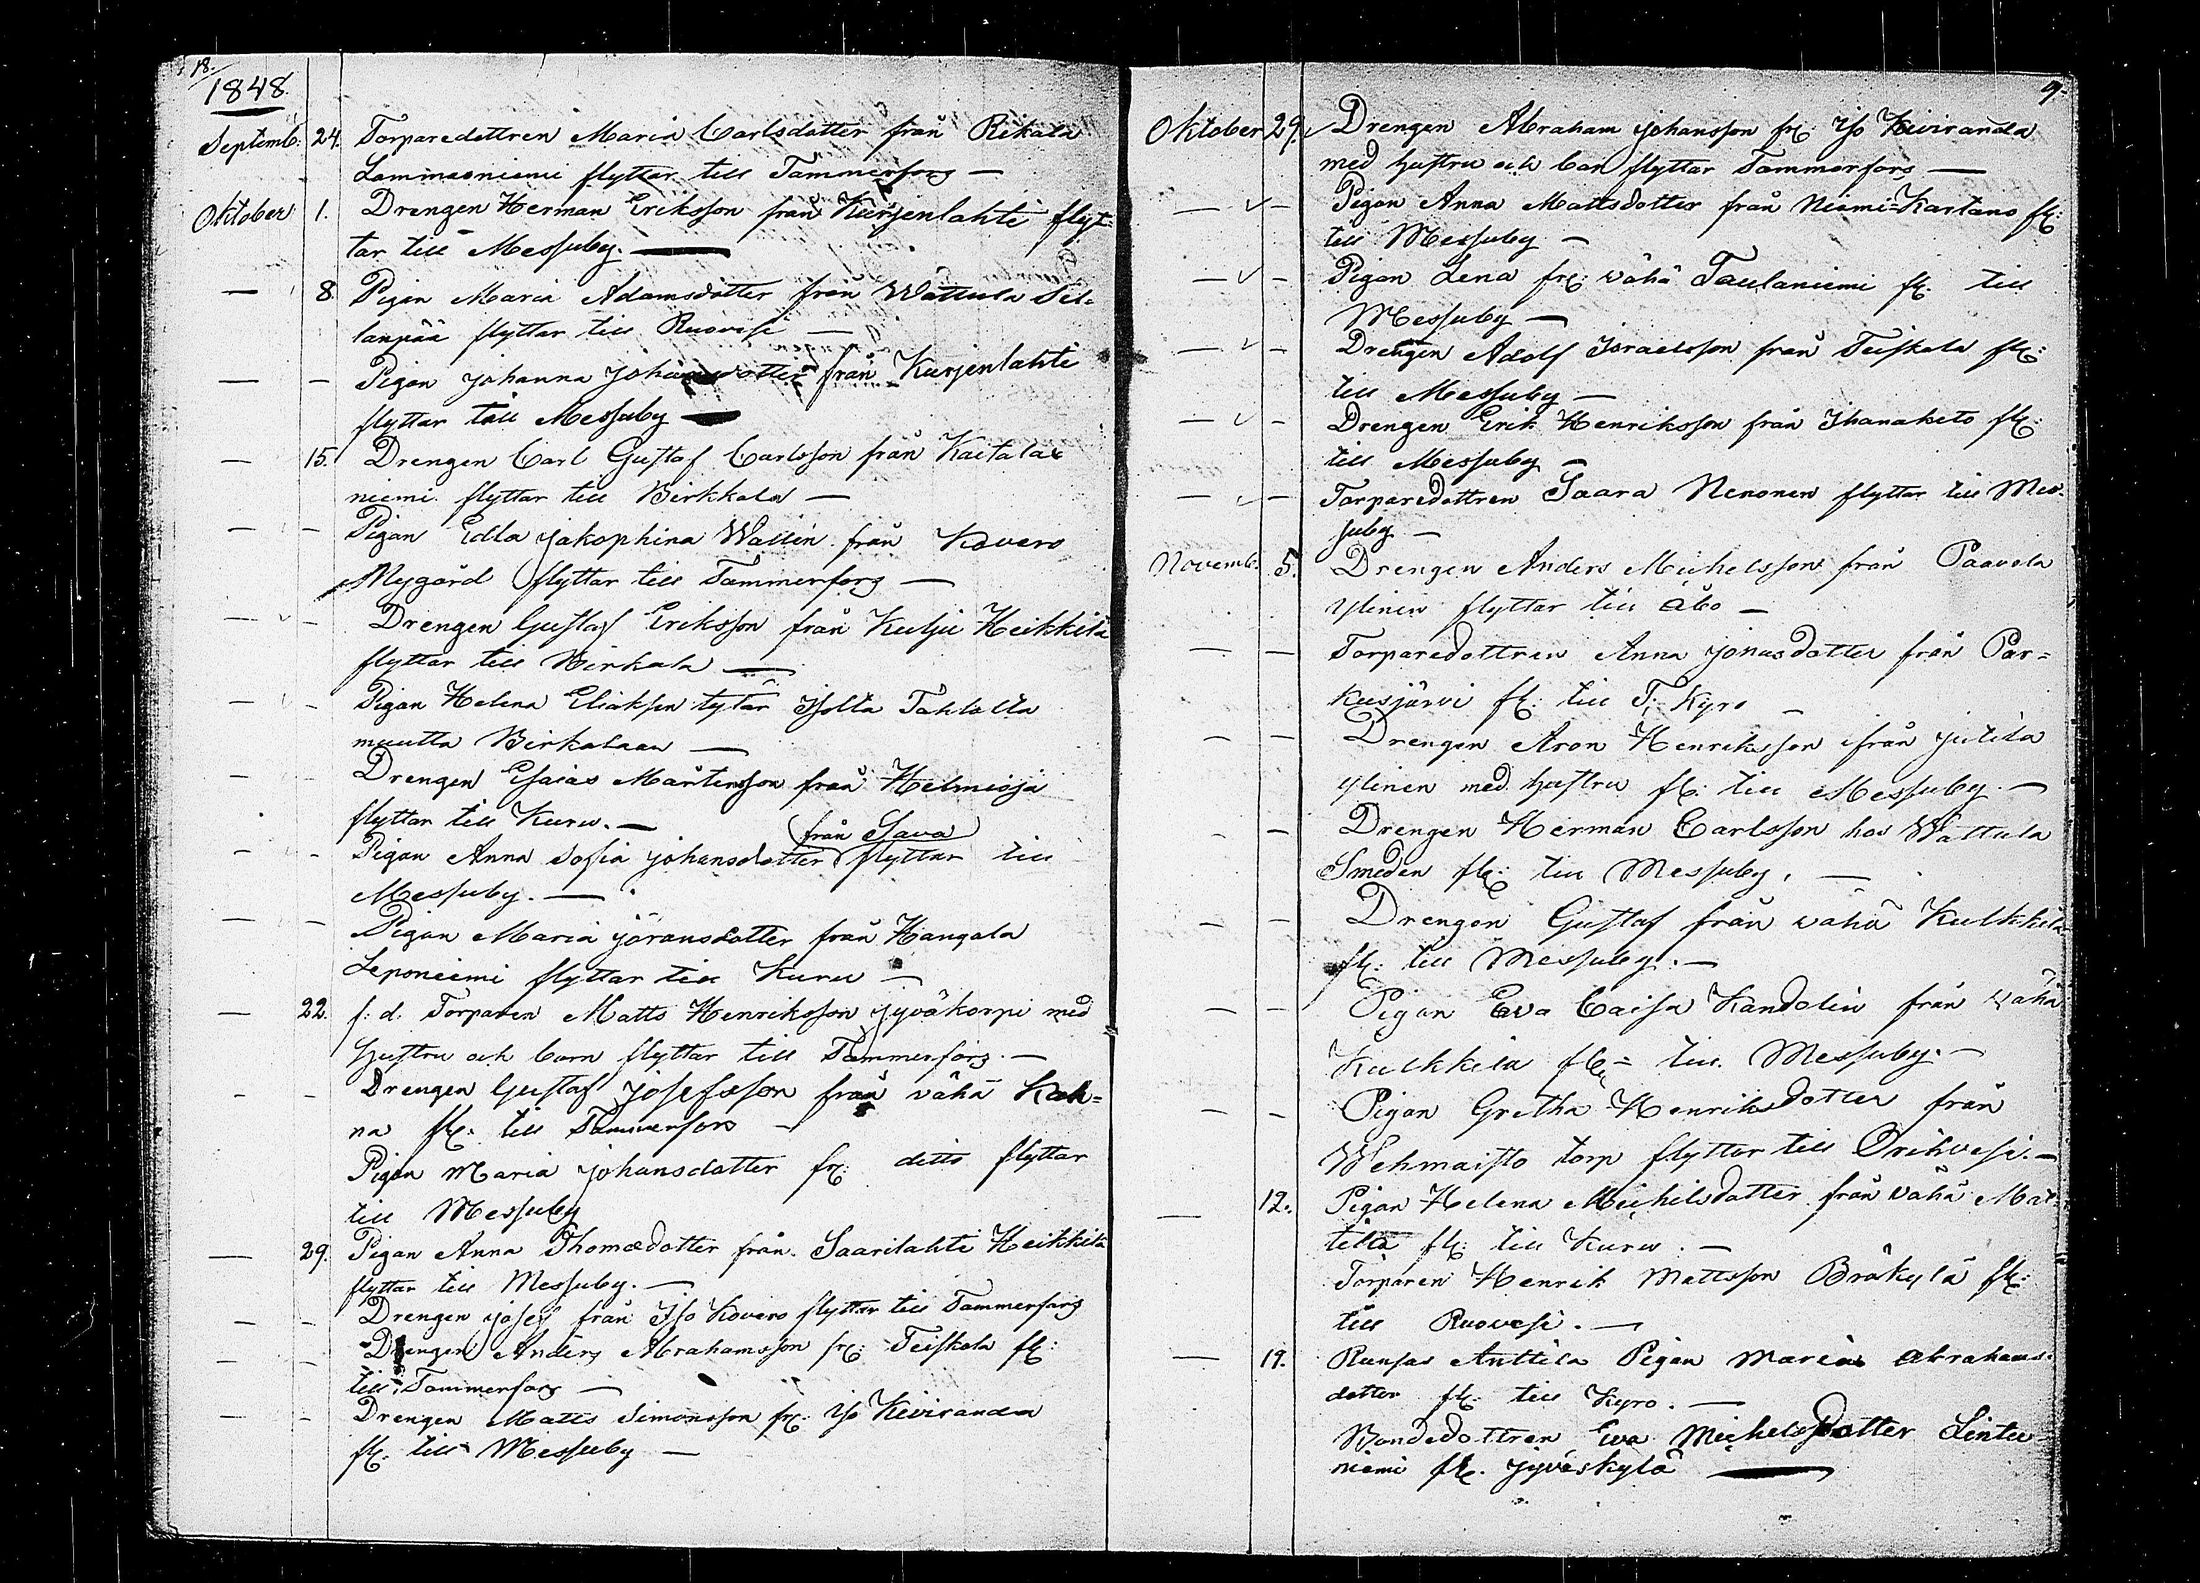 18.
1848.
Septemb. 24. Torparedottren Maria Carlsdotter från Rikala
Lammasniemi flyttar till Tammerfors —
Oktober 1. Drengen Herman Eriksson från Kurjenlahti flyt-
tar till Messuby. —
— 8. Pigan Maria Adamsdotter från Wattula Sil-
lanpää flyttar till Ruovesi —
— — Pigan Johanna Johansdotter från Kurjenlahti
flyttar till Messuby —
— 15. Drengen Carl Gustaf Carlsson från Kaitala
niemi flyttar till Birkkala —
— — Pigan Edla Jakophina Wallin från Kovero
Nygård flyttar till Tammerfors —
— — Drengen Gustaf Eriksson från Kulju Heikkilä
flyttar till Birkala —
— — Pigan Helena Eliaksen tytär Isolta Tahlolta
muutta Birkalaan —
— — Drengen Esaias Mårtensson från Helmioja
flyttar till Kuru. —
från Sava
— — Pigan Anna Sofia Johansdotter flyttar till
Messuby. —
— — Pigan Maria Jöransdotter från Hangala
Leponiemi flyttar till Kuru —
— 22. f: d: Torparen Matts Henriksson Jyväkorpi med
hustru och barn flyttar till Tammerfors. —
— — Drengen Gustaf Josefsson från vähä Kah=
na fl: till Tammerfors —
Pigan Maria Johansdotter fr: ditto flyttar
till Messuby
— 29. Pigan Anna Thomædotter från Saarilahti Heikkilä
flyttar till Messuby. —
— — Drengen Josef från Iso Kovero flyttar till Tammerfors
— — Drengen Anders Abrahamsson fr: Teiskola fl:
till Tammerfors —
— — Drengen Matts Simonsson fr: Iso Kiviranda
fl: till Messuby —
9.
Oktober 29. Drengen Abraham Johansson fr: Iso Kiviranda
med hustru och barn flyttar Tammerfors —
— — Pigan Anna Mattsdotter från Niemi=Kartano fl:
till Messuby —
— — Pigan Lena fr: vähä Taulaniemi fl: till
Messuby —
— — Drengen Adolf Israelsson från Teiskola fl:
till Messuby —
— — Drengen Erik Henriksson från Ihanaketo fl:
till Messuby —
— — Torparedottren Saara Nenonen flyttar till Mes-
suby —
Novemb. 5. Drengen Anders Michelsson från Paavola
Ylinen flyttar till Åbo —
— — Torparedottren Anna Jonasdotter från Par=
kusjärvi fl: till T: Kyro —
— — Drengen Aron Henriksson ifrån Jutila
Ylinen med hustru fl: till Messuby. —
— — Drengen Herman Carlsson hos Wattula
Smeden fl: till Messuby. —
— — Drengen Gustaf från vähä Kulkkila
fl: till Messuby. —
— — Pigan Eva Caisa Kandolin från vähä
Kulkkila fl: till Messuby. —
— — Pigan Gretha Henriksdotter från
Wehmaisto torp flyttar till Orihvesi. —
— 12. Pigan Helena Michelsdotter från vähä Mat-
tila fl: till Kuru. —
Torparen Henrik Mattsson Bråkylä fl:
till Ruovesi. —
— 19. Runsas Anttila Pigan Maria Abrahams-
dotter fl: till Kyro. —
Bondedottren Eva Michelsdotter Lintu-
niemi fl: Jyväskylä —